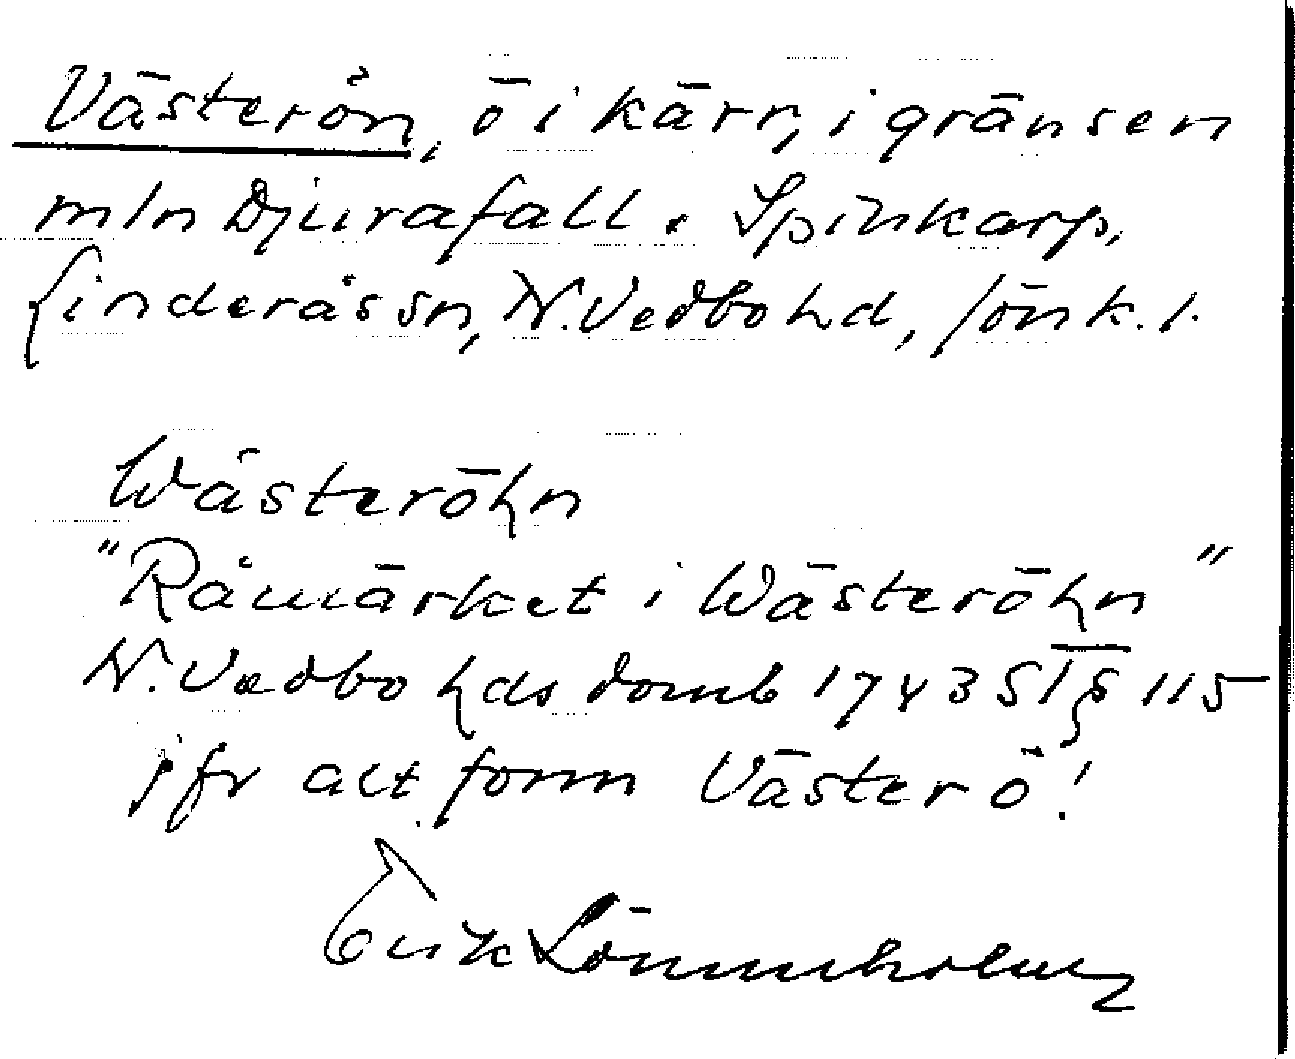 Västerön, ö i kärr, i gränsen
mln Djurafall o. Spinkarp,
Linderås sn, N. Vedbo hd, Jönk. l.
Wästeröhn
"Råmärket i Wästeröhn"
N. Vedbo hds domb 1743 ST § 115
jfr alt. form Västerö!
Erik Lönnholm